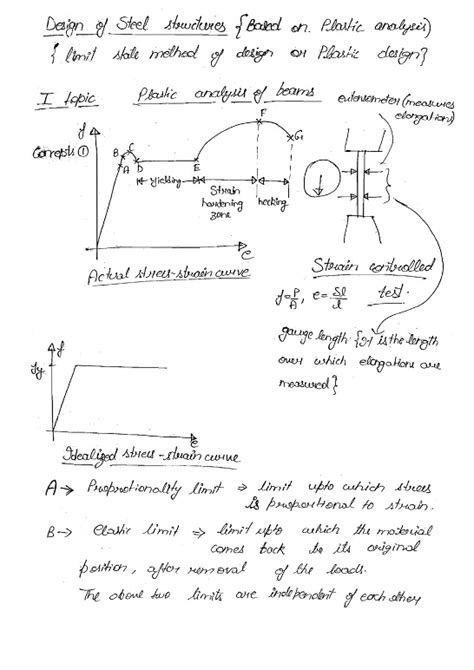 Design of Steel structures {Based on Plastic analysis}
{ limit state method of design or Plastic design}
I topic Plastic analysis of beams
extensometer (measures
elongations)
Concepts ①
f
B C
A D E F G
yielding
Strain
hardening
zone
necking
e
Actual stress-strain curve
Strain controlled
test.
f=P/A, e=δl/l
gauge length {It is the length
over which elongations are
measured}
f
fy
e
Idealized stress-strain curve
A → Proportionality limit ⇒ limit upto which stress
is proportional to strain.
B → elastic limit ⇒ limit upto which the material
comes back to its original
position, after removal of the loads.
The above two limits are independent of each other